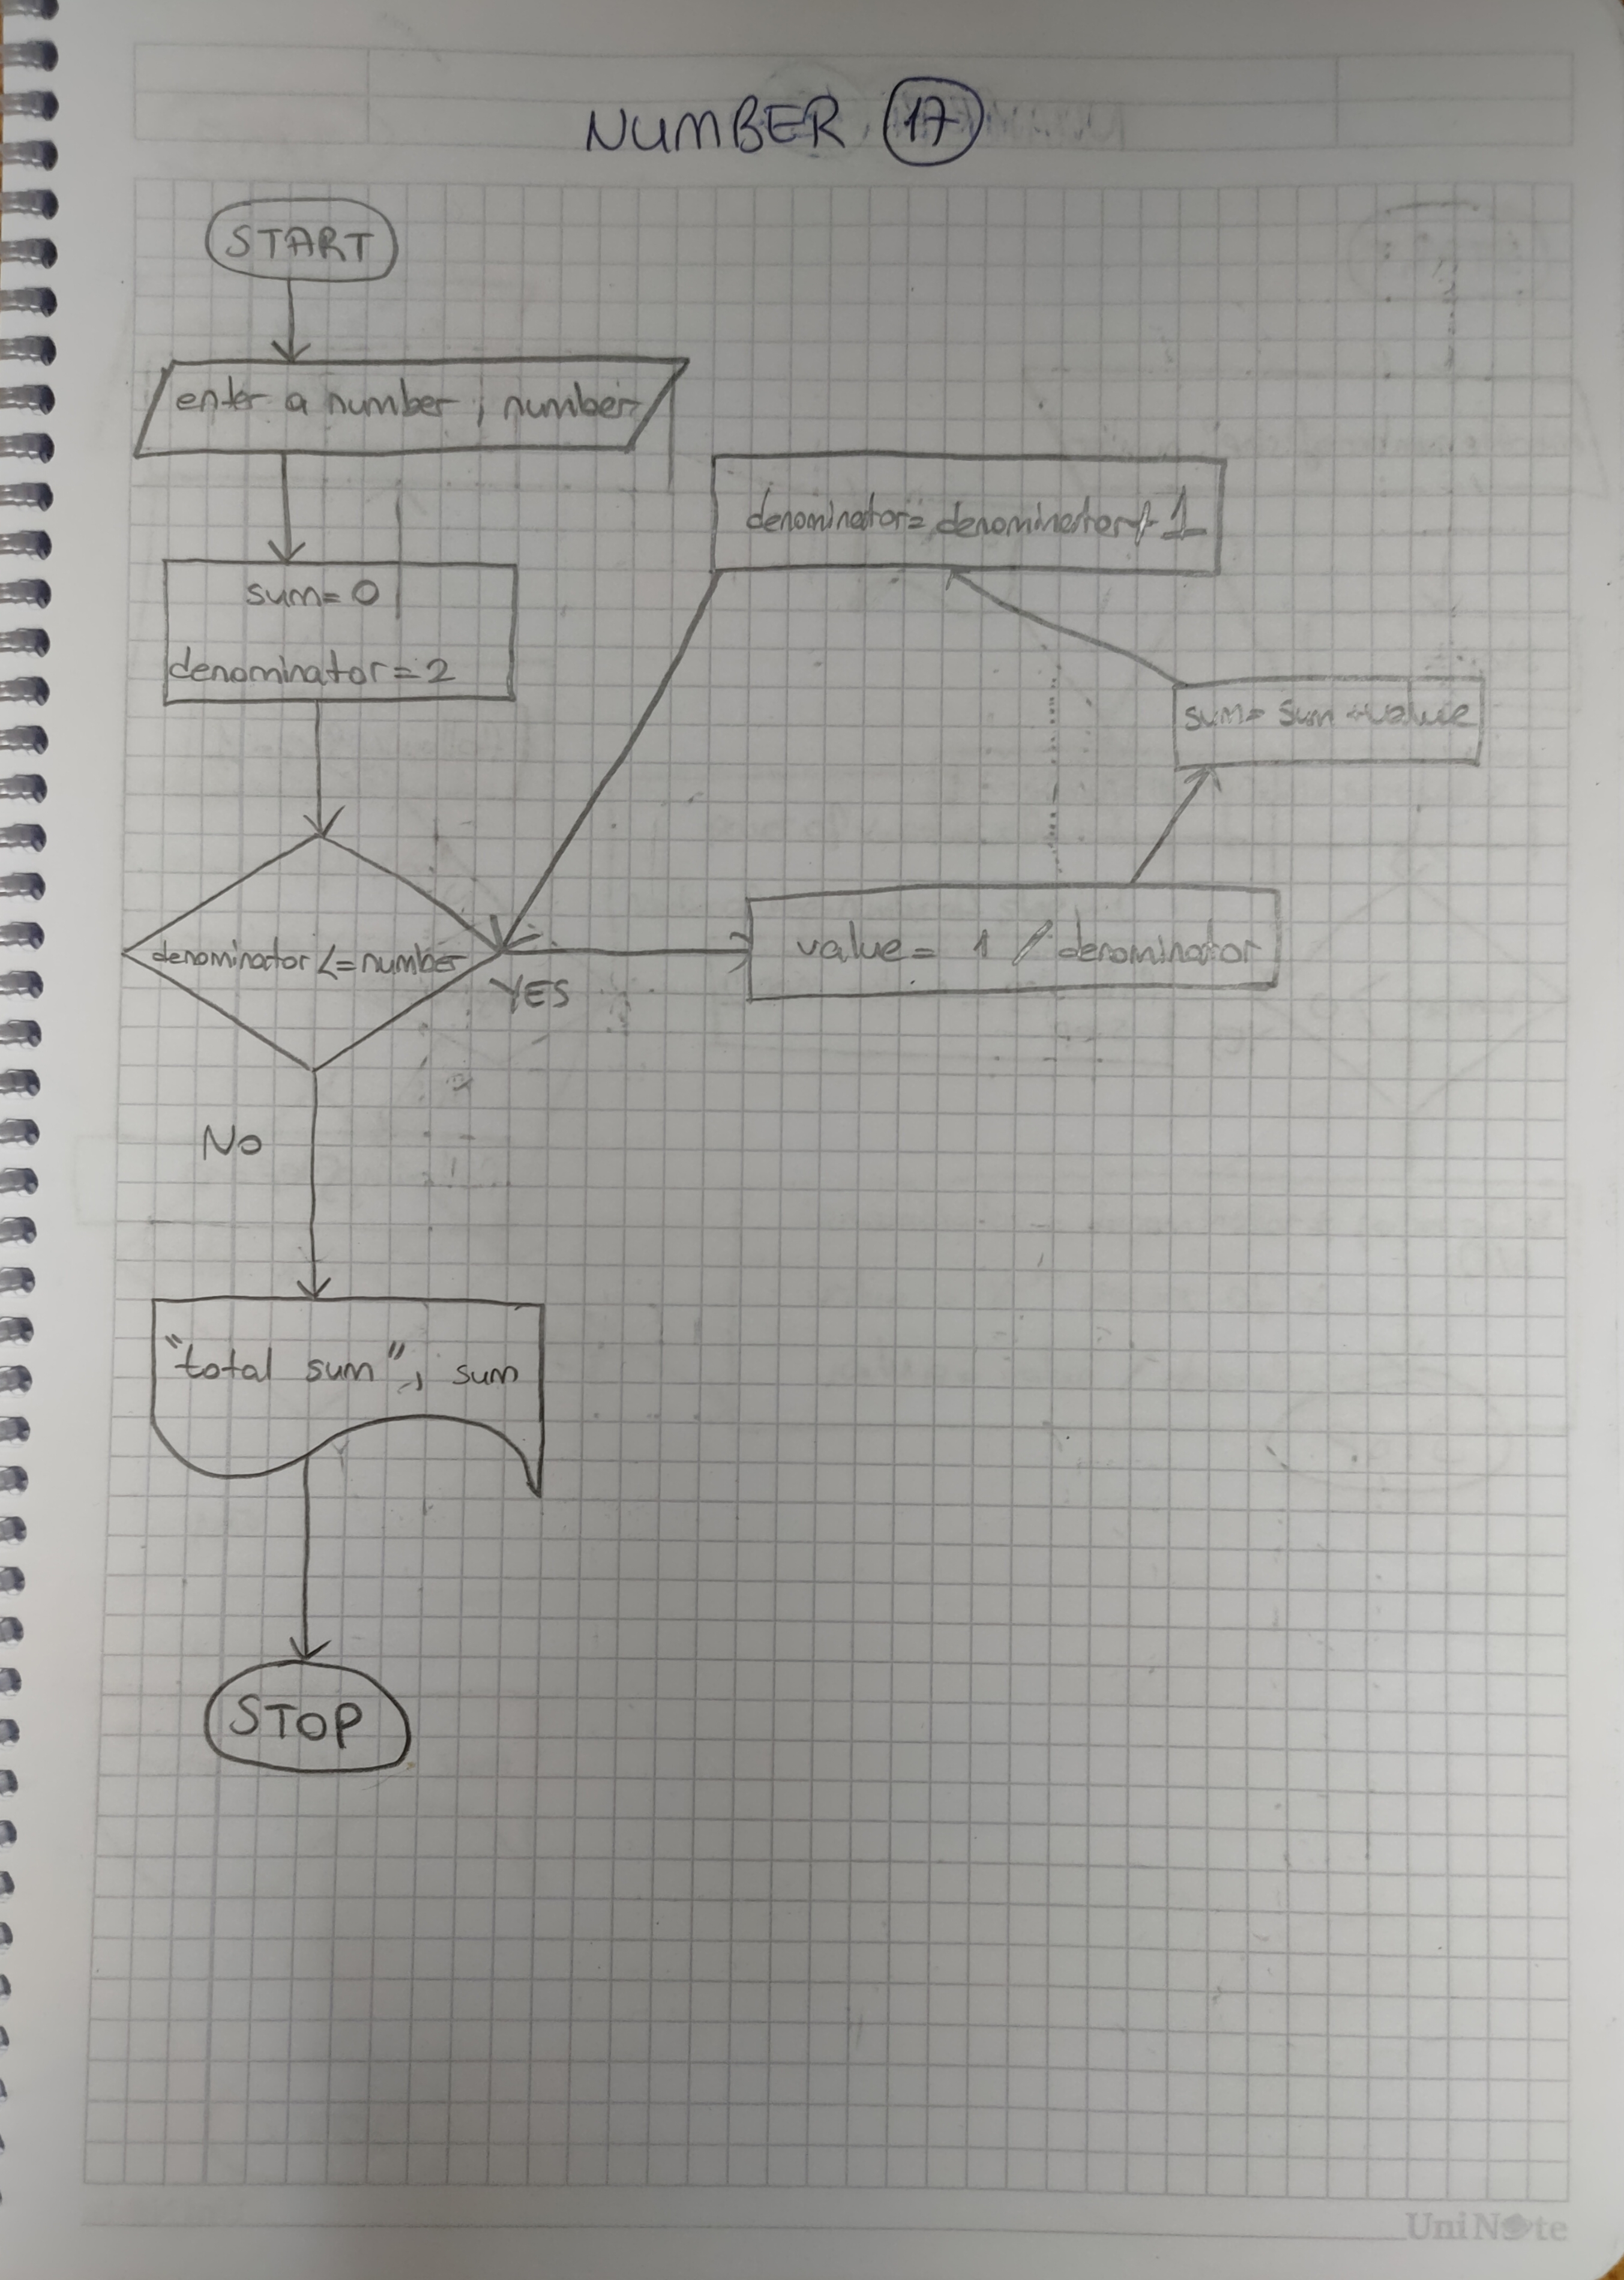 NUMBER 17
START
enter a number ; number
sum=0
denominator=2
denominator <=number
YES
value= 1 / denominator
sum= sum +value
denominator= denominator+1
No
"total sum", sum
STOP
UniNote